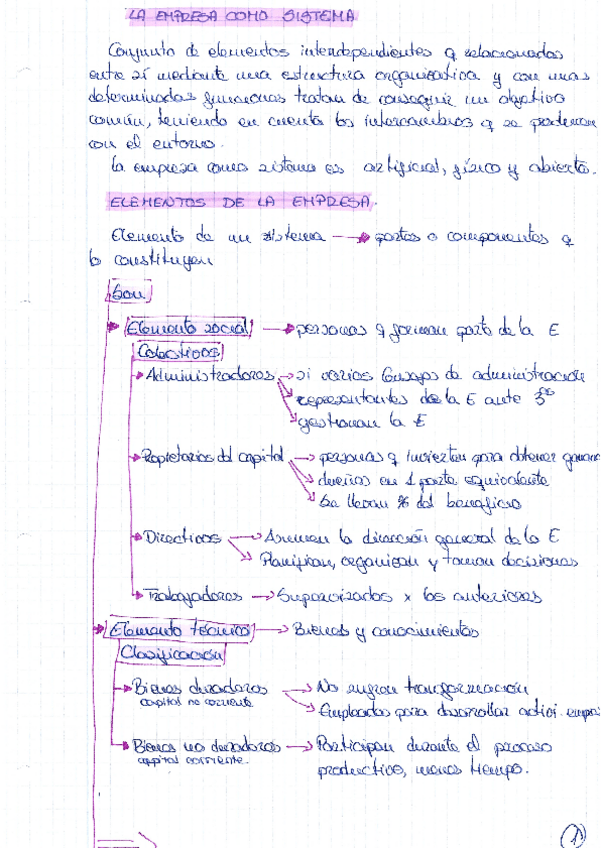 LA EMPRESA COMO SISTEMA
Conjunto de elementos interdependientes q relacionados
entre sí mediante una estructura organizativa y con unas
determinadas funciones tratan de conseguir un objetivo
común, teniendo en cuenta los intercambios q se producen
con el entorno.
La empresa como sistema es artificial, físico y abierto.
ELEMENTOS DE LA EMPRESA.
Elemento de un sistema → partes o componentes q
lo constituyen
Son
Elemento social → personas q forman parte de la E
Colectivos
Administradores → si varios Consejos de administración
→ representantes de la E ante 3ºs
→ gestionan la E
Propietarios del capital → personas q invierten para obtener
→ dueños en 1 parte equivalente
→ Se llevan % del beneficio
Directivos → Asumen la dirección general de la E
→ Planifican, organizan y toman decisiones
Trabajadores → Supervizados x los anteriores
Elemento técnico → Bienes y conocimientos
Clasificación
Bienes duraderos → No sufren transformación
capital no corriente → Empleados para desarrollar activi.
Bienes no duraderos → Participan durante el proceso
capital corriente. productivo, menos tiempo.
1